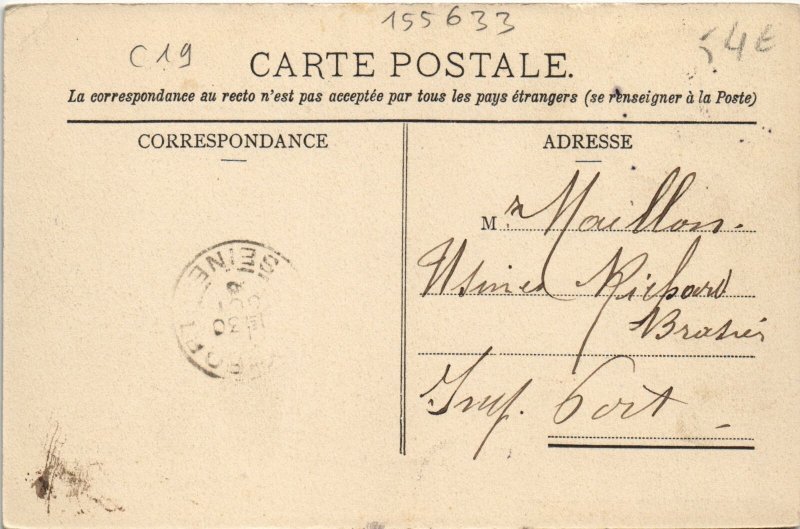 155633
C19
54€
CARTE POSTALE.
La correspondance au recto n'est pas acceptée par tous les pays étrangers (se renseigner à la Poste)
CORRESPONDANCE
ADRESSE
M r Maillon.
Usines Richard
Brasier
Ivry. Port
SEINE
30